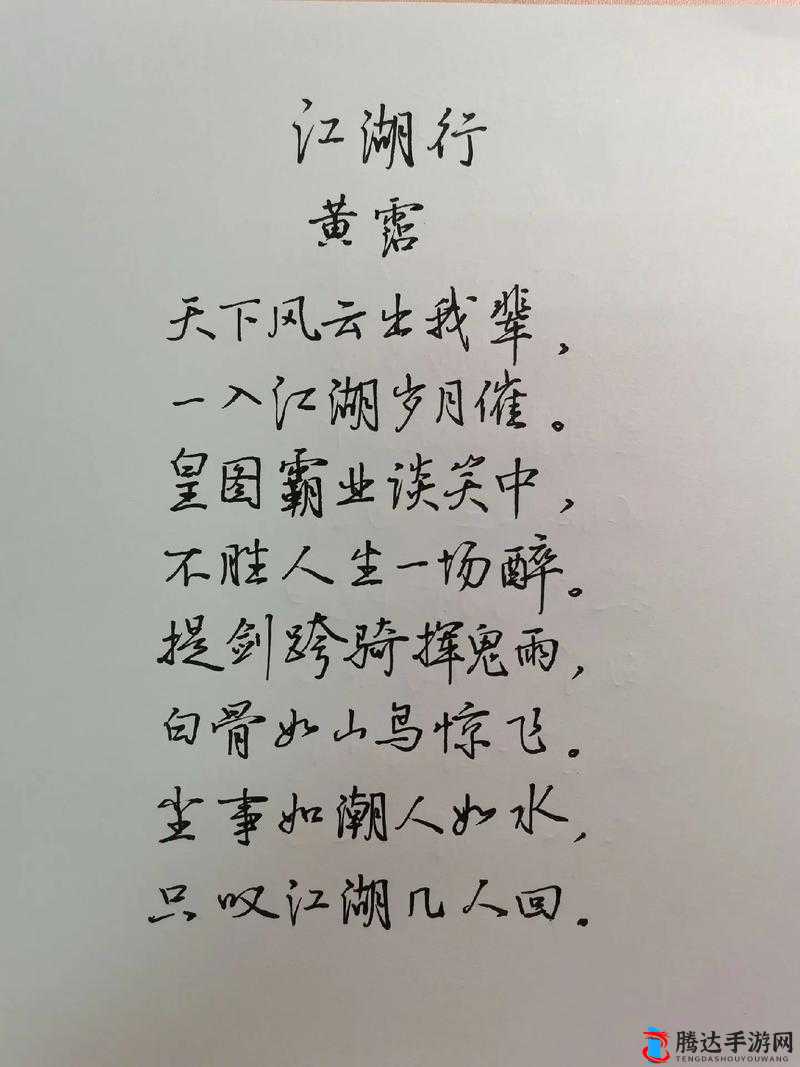 江湖行
黄霑
天下风云出我辈，
一入江湖岁月催。
皇图霸业谈笑中，
不胜人生一场醉。
提剑跨骑挥鬼雨，
白骨如山鸟惊飞。
尘事如潮人如水，
只叹江湖几人回。
腾达手游网
TENGDASHOUYOUWANG